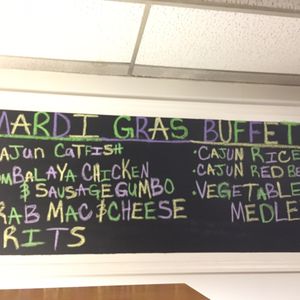 MARDI GRAS BUFFET
AJUN CATFISH
MBALAYA CHICKEN
& SAUSAGE GUMBO
RAB MAC & CHEESE
RITS
• CAJUN RICE
• CAJUN RED BE
• VEGETABLE
MEDLE